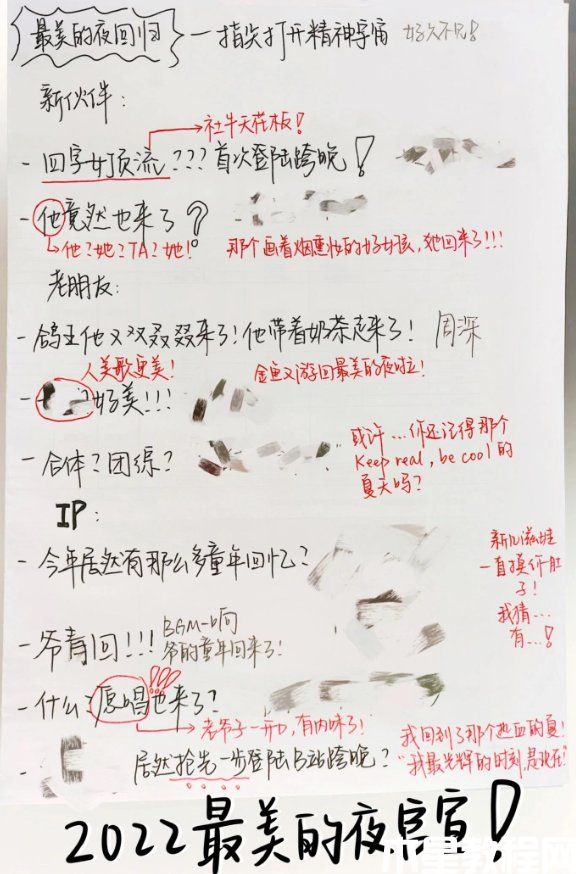 最美的夜回归 —指尖打开精神宇宙 好久不见!
新伙伴:
社牛天花板!
- 四字女顶流???首次登陆跨晚!
- 他竟然也来了?
他?她?TA?她! 那个画着烟熏妆的好女孩,她回来了!!!
老朋友:
- 鸽王他又双叒叕来了!他带着奶茶走来了! 周深
人美歌更美! 金鱼又游回最美的夜啦!
- 好美!!!
- 合体?团综?
或许...你还记得那个
Keep real, be cool的
夏天吗?
IP:
- 今年居然有那么多童年回忆?
一直摸你肚
子!
我猜...
有...!
- 爷青回!!! BGM一响
爷的童年回来了!
- 什么?愿唱也来了?
老爷子一开口,有内味了!
- 居然抢先一步登陆B站跨晚?
我回到了那个热血的夏!
"我最光辉的时刻,是现在!"
2022最美的夜官宣!